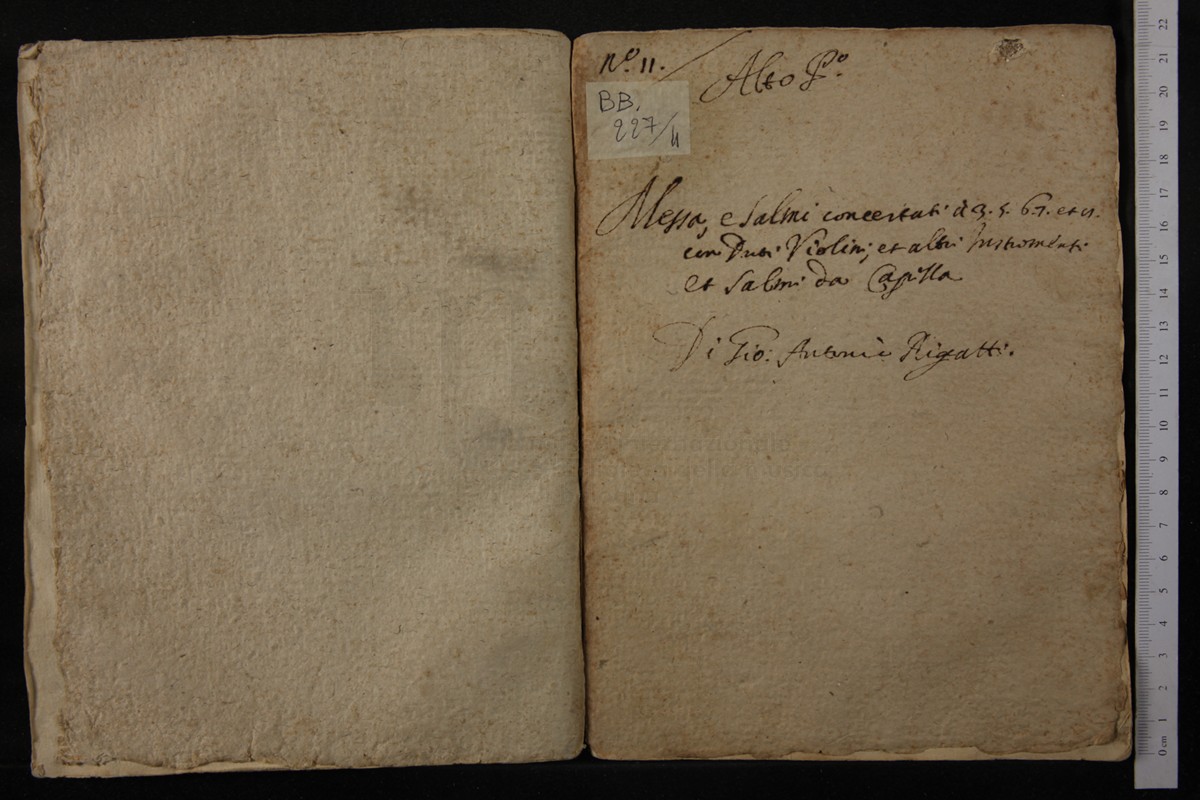 N.º 11.
Alto P.º
BB.
227/11
Messa, e Salmi concertati à 3. 5. 6. 7. et
con Duoi Violini, et altri Instromenti
et Salmi da Capella
Di Gio: Antonio Rigatti.
22
21
20
19
18
17
16
15
14
13
12
11
10
9
8
7
6
5
4
3
2
1
0 cm